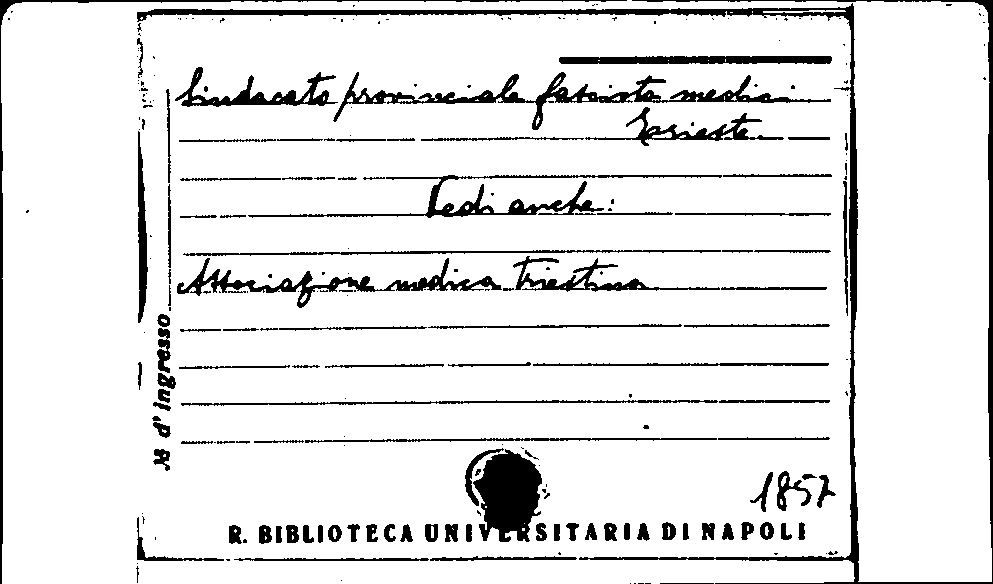 Sindacato provinciale fascista medici
Trieste.
Vedi anche:
Associazione medica triestina
N d'ingresso
1857
R. BIBLIOTECA UNIVERSITARIA DI NAPOLI